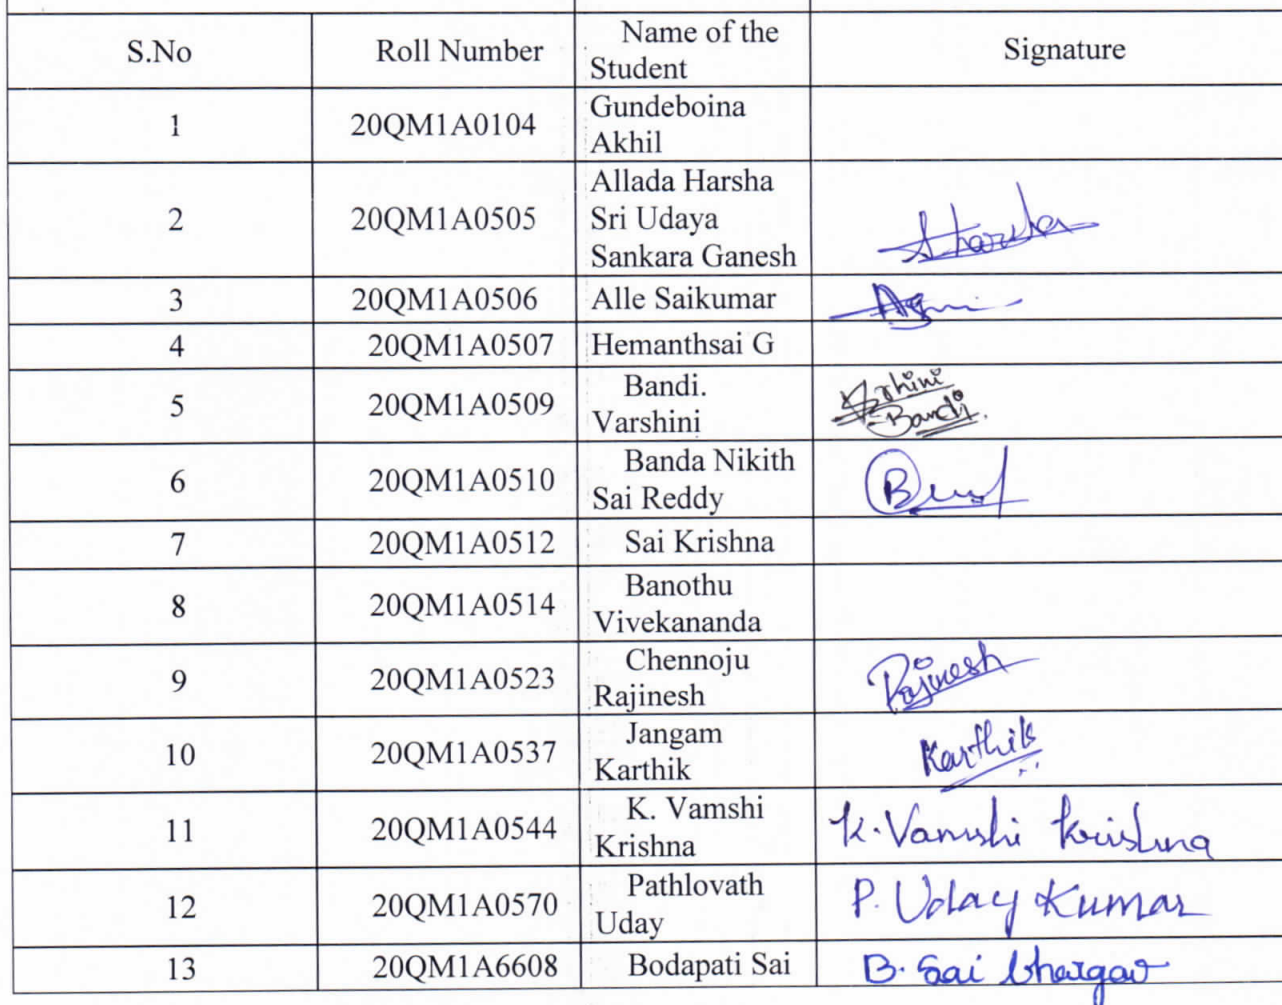 S.No Roll Number Name of the Student Signature
1 20QM1A0104 Gundeboina Akhil
2 20QM1A0505 Allada Harsha Sri Udaya Sankara Ganesh Harsha
3 20QM1A0506 Alle Saikumar
4 20QM1A0507 Hemanthsai G
5 20QM1A0509 Bandi. Varshini Varshini Bandi.
6 20QM1A0510 Banda Nikith Sai Reddy
7 20QM1A0512 Sai Krishna
8 20QM1A0514 Banothu Vivekananda
9 20QM1A0523 Chennoju Rajinesh Rajinesh
10 20QM1A0537 Jangam Karthik Karthik
11 20QM1A0544 K. Vamshi Krishna K. Vamshi Krishna
12 20QM1A0570 Pathlovath Uday P. Uday Kumar
13 20QM1A6608 Bodapati Sai B. Sai bhargav